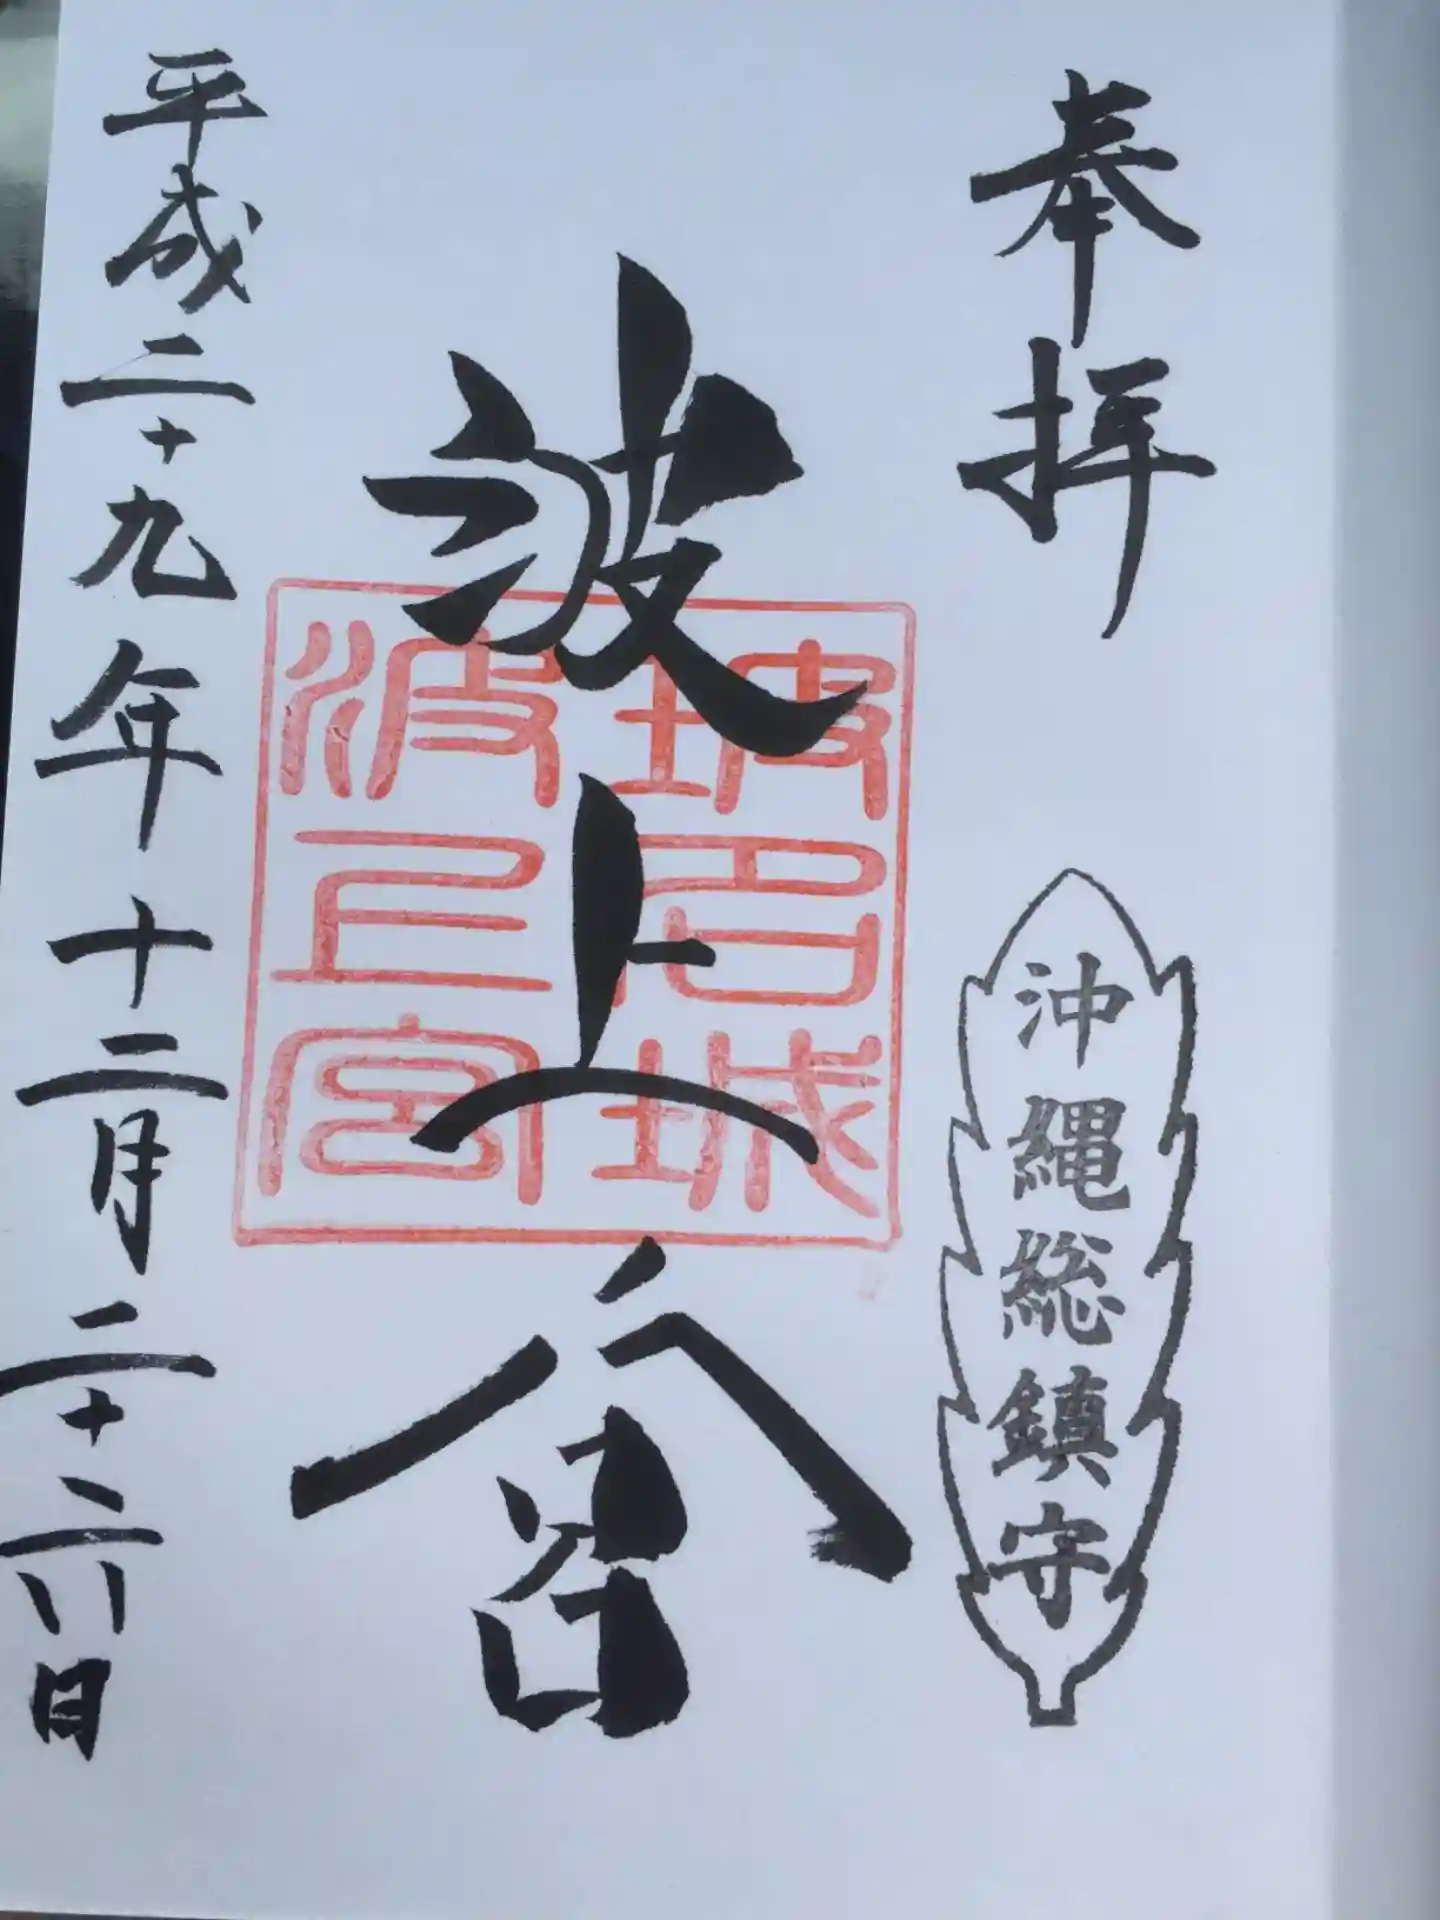 奉拝
沖縄総鎮守
波上宮
波上宮
平成二十九年十二月二十六日